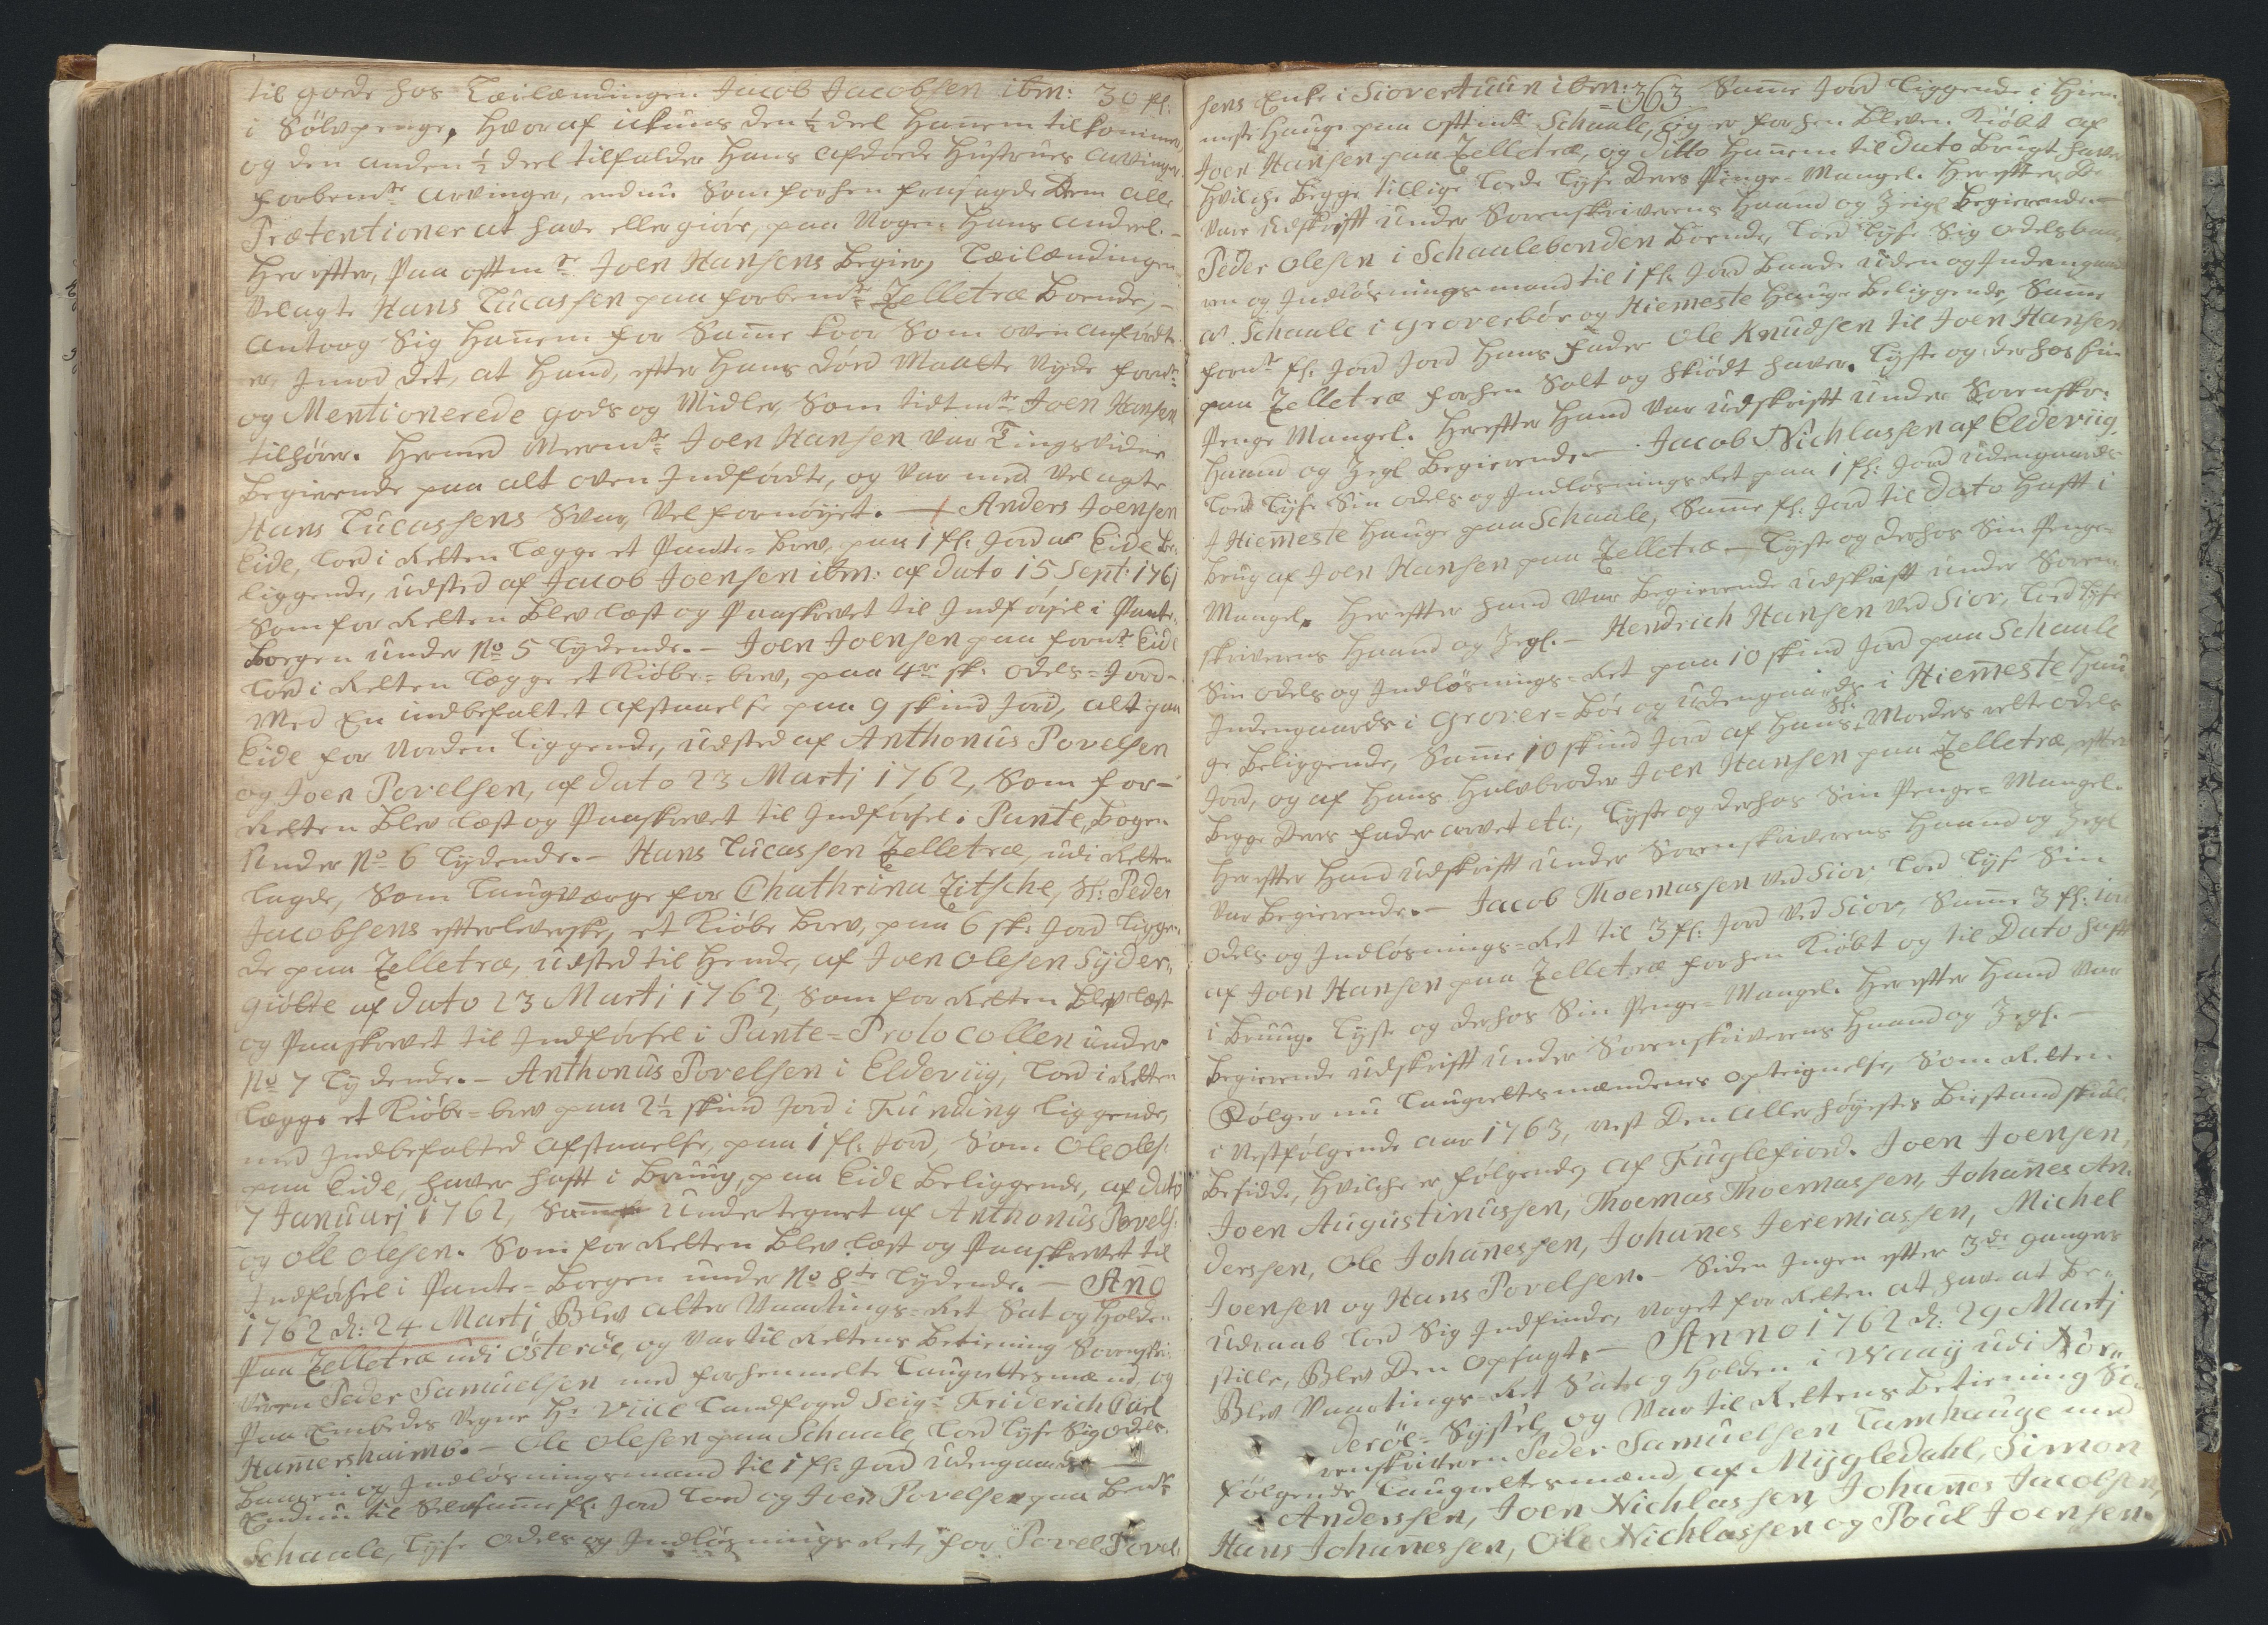 til gode hos Leilændingen Jacob Jacobsen ibm: 30 fl:
i Sølvpenge, hvoraf akuns den ½ deel hannem tilkommer,
og den anden ½ deel tilfalder hans afdøde Hustrues arvinger
forbemte arvinger, endnu som forhen frasagde Dem alle
Prætentioner at have eller giøre, paa Nogen hans andeel.-
Herefter, paa oftmte Joen Hansens Begier, Leilændingen
Velagte Hans Lucassen paa forbemte Zelletræ Boende,-
antoog Sig hannem for Samme koor Som oven anførdt
er, Jmod det, at hand, efter hans død Maatte Nyde forbte
og Mentionerede gods og Midler, Som tidtmte Joen Hansen
tilhører. Hermed Meermte Joen Hansen var Tingsvidne
Begierende paa alt oven Jndførdte, og var med Velagte
Hans Lucassens Svar, Vel fornøyet. — Anders Joensen
Eide, Lod i Retten Lægge et Pante-Brev, paa 1 fl: Jord a Eide be-
liggende, udsted af Jacob Joensen ibm: af Dato 15 Sept: 1761
Som for Retten Blev Læst og Paaskrevet til Jndførsel i Pante-
Bogen under No 5 Lydende.- Joen Joensen paa fornte Eide
Lod i Retten Lægge et Kiøbe-brev, paa 4re sk: odels-Jord-
Med En indbefattet afstaaelse paa 9 skind Jord, alt paa
Eide for Norden Liggende, udsted af Anthonus Povelsen
og Joen Povelsen, af Dato 23 Martj 1762, Som for-
Retten Blev Læst og Paaskrevet til Jndførsel i Pante, Bogen
Under No 6 Lydende.- Hans Lucassen Zelletræ, udi Retten
Lagde, Som Laugværge for Chathrina Zitsche, Sl: Peder
Jacobsens efterleverske, et Kiøbe Brev, paa 6 sk: Jord Liggen-
de paa Zelletræ, udsted til Hende, af Joen Olesen Syder-
giøtte af Dato 23 Martj 1762, Som for Retten Blev Læst
og Paaskrevet til Jndførsel i Pante-Protocollen under
No 7 Lydende.- Anthonus Povelsen i Eldeviig, Lod i Retten
Lægge et Kiøbe-brev paa 2½ skind Jord i Funding Liggende,
med Jndbefatted afstaaelse, paa 1 fl: Jord, Som Ole Oles:
paa Eide, haver hafft i Bruug, paa Eide Beliggende, af Dato
7 Januarj 1762, Undertegnet af Anthonus Povels:
og Ole Olesen. Som for Retten Blev Læst og Paaskrevet til
Jndførsel i Pante-Bogen under No 8te Lydende.- Anno
1762 d: 24 Martj Blev atter Vaartings-Ret Sat og Holden
Paa Zelletræ udi Österöe, og var til Rettens Betiening Sorenskri-
veren Peder Samuelsen med forhenmelte Laugrettesmænd, og
Paa Embeds Vegne Hr Vice Landfoged Seigr Friderich Carl
Hammershaimb.- Ole Olesen paa Schaale, Lod Lyse Sig odels-
Baaren og Jndløsningsmand til 1 fl: Jord Udengaards
Endnu til Selvsamme fl: Jord Lod og Joen Povelsen paa Bemte
Schaale, Lyse odels og Jndløsnings Ret, for Povel Povel-
sens Enke i Siovertuun ibm: 363 Samme Jord Liggende i Hiem-
meste Hauge paa oftmte Schaale, og er forhen Bleven Kiøbt af
Joen Hansen paa Zelletræ, og Ditto hannem til Dato Brugt haver
Hvilche Begge tillige Lode Lyse Deres Penge-Mangel. Herefter De
Vare Udskrifft Under Sorenskriverens Haand og Zeigl Begierende.-
Peder Olesen i Schaalebonden Boende, Lod Lyse Sig odelsbaa-
ren og Jndløsningsmand til 1 fl: Jord Baade Uden og Jndengaards
a Schaale i Groverbör og Hiemeste Hauge Beliggende, Samme
fornte fl: Jord Jord Hans Fader Ole Knudsen til Joen Hansen
paa Zelletræ forhen Solt og skiødt haver. Lyste og derhos sin
Penge Mangel. Herefter Hand Var Udskrifft under Sorenskr:
Haand og Zegl Begierende.- Jacob Nichlassen af Eldeviig,
Lod Lyse Sin odels og Jndløsnings Ret paa 1 fl: Jord udengaards
J Hiemeste Hauge paa Schaale, Samme fl: Jord til Dato hafft i
Brug af Joen Hansen paa Zelletræ.- Lyste og derhos Sin Penge-
Mangel. Herefter hand Var Begierende Udskrifft under Soren-
skriverens Haand og Zegl.- Hendrich Hansen ved Sior, Lod Lyse
Sin odels og Jndløsnings-Ret paa 10 skind Jord paa Schaale
Jndengaards i Grover-Bör og udengaards i Hiemeste Hau-
ge Beliggende, Samme 10 skind Jord af Hans Sl: Moders rette odels
Jord, og af Hans Halvbroder Joen Hansen paa Zelletræ, efter
Begge Deres Fader arvet etc:, Lyste og derhos Sin Penge-Mangel.
Herefter Hand udskrifft under Sorenskriverens Haand og Zegl
Var Begierende.- Jacob Thoemassen ved Sior Lod Lyse Sin
odels og Jndløsnings-Ret til 3 fl: Jord ved Sior, Samme 3 fl: Jord
af Joen Hansen paa Zelletræ forhen Kiøbt og til Dato hafft
i Bruug. Lyste og derhos Sin Penge-Mangel. Herefter Hand Var
Begierende Udskrifft under Sorenskriverens Haand og Zegl.-
Følger nu Laugrettesmændenes optegnelse, Som Retten
i Nestfølgende aar 1763, nest Den Allerhøyestes Biestand skal
Besidde, Hvilche er følgende, af Fuglefiord. Joen Joensen,
Joen Augustinussen, Thoemas Thoemassen, Johannes An-
derssen, Ole Johannessen, Johannes Jeremiassen, Michel
Joensen og Hans Povelsen.- Siden Jngen efter 3de ganges
Udraab Lod Sig Jndfinde, Noget for Retten at have at Be-
stille, Blev Den opsagt.- Anno 1762 d: 29 Martj
Blev Vaartings-Ret Sat og Holden i Waay udi Nör-
deröe-Syssel, og Var til Rettens Betiening So-
renskriveren Peder Samuelsen Lamhauge med
følgende Laugrettesmænd, af Mygledahl, Simon
Anderssen, Joen Nichlassen, Johannes Jacobsen,
Hans Johannessen, Ole Nichlassen og Poul Joensen.